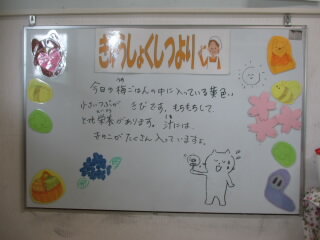 きゅうしょくしつより
今日の梅ごはんの中に入っている黄色い
小さいつぶが きびです。もちもちして、
とても栄養があります。汁には、
きのこがたくさん入っていますよ。